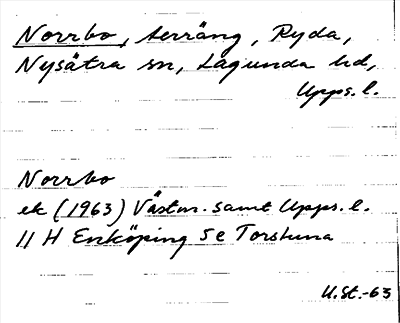 Norrbo, terräng, Ryda,
Nysätra sn, Lagunda hd,
Upps. l.
Norrbo
ek (1963) Västm. samt Upps. l.
11 H Enköping 5 e Torstuna
U.St.-63